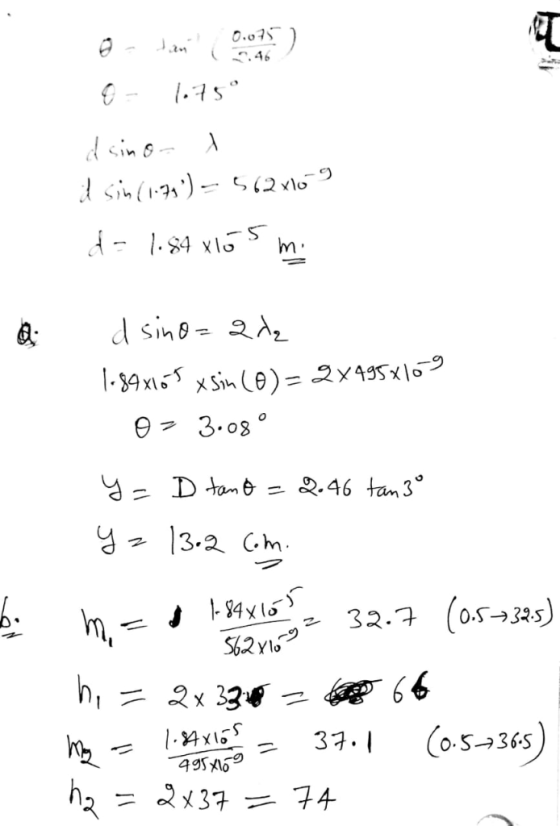 θ = tan⁻¹ (0.075/2.46)
θ = 1.75°
d sin θ = λ
d sin(1.75°) = 562×10⁻⁹
d = 1.84 ×10⁻⁵ m.
a.
d sinθ = 2λ₂
1.84×10⁻⁵ × sin(θ) = 2×495×10⁻⁹
θ = 3.08°
y = D tanθ = 2.46 tan3°
y = 13.2 C.m.
b. m₁ = 1.84×10⁻⁵/562×10⁻⁹ = 32.7 (0.5→32.5)
h₁ = 2×33 = 66
m₂ = 1.84×10⁻⁵/495×10⁻⁹ = 37.1 (0.5→36.5)
h₂ = 2×37 = 74